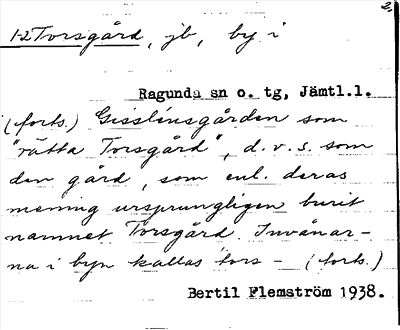 2.
1-2 Torsgård, jb, by i
Ragunda sn o. tg, Jämtl.l.
(forts.) Gisslénsgården som
"rätta Torsgård", d.v.s. som
den gård, som enl. deras
mening ursprungligen burit
namnet Torsgård. Invånar-
na i byn kallas tors- (forts.)
Bertil Flemström 1938.